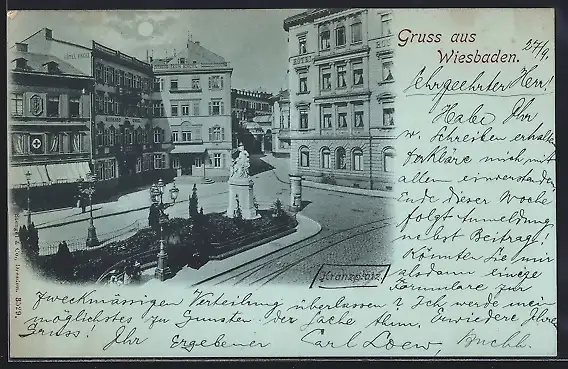 Gruss aus
Wiesbaden.
27/9.
Ehrgeehrter Herr!
Habe Ihr
w. Schreiben erhalten
Erkläre mich mit
allem einverstanden
Ende dieser Woche
folgt Anmeldung
nebst Beitrag!
Könnten Sie mir
alsdann einige
Formulare zur
zweckmässigen Verteilung überlassen? Ich werde mein
möglichstes zu Gunsten der Sache thun. Erwiedere Ihre
Grüss! Ihr Ergebener Carl Loew, Buchh.
Kranzplatz.
& Co., Dresden. 8329.